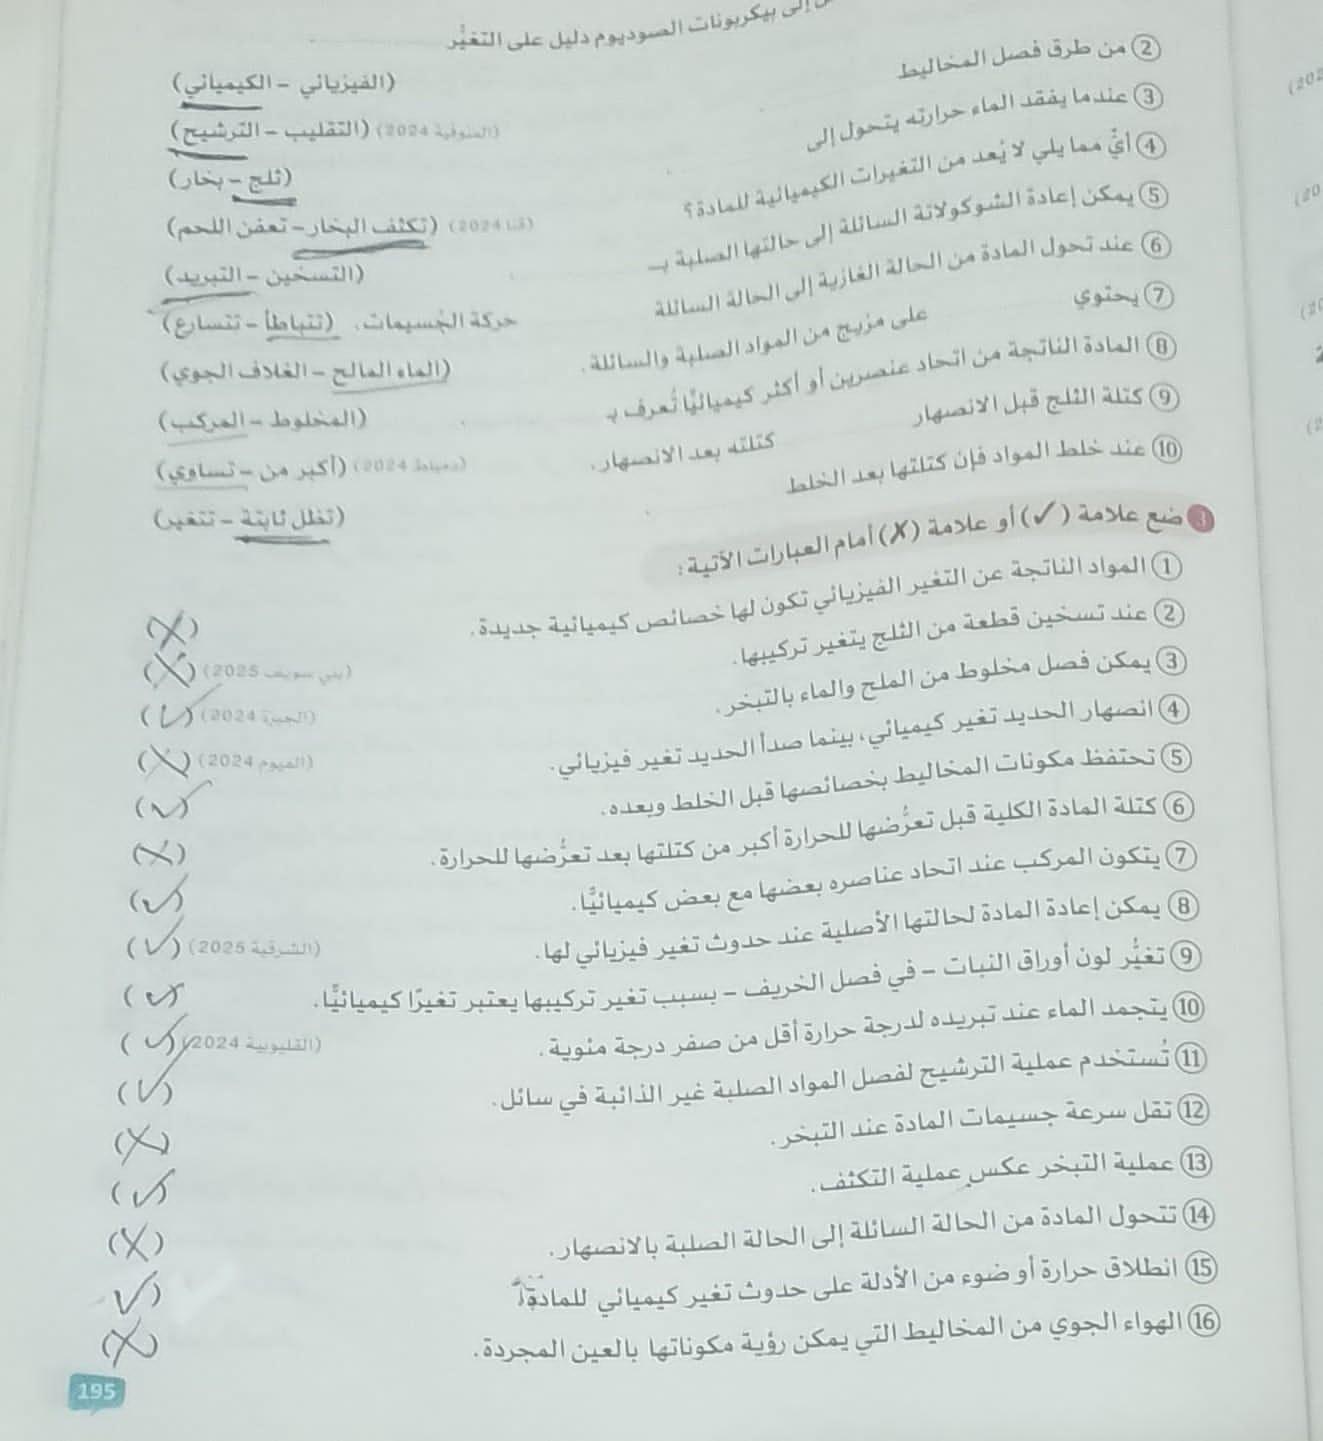 إلى بيكربونات الصوديوم دليل على التغيُّر (الفيزيائي - الكيميائي)
② من طرق فصل المخاليط (المنوفية 2024) (التقليب - الترشيح)
③ عندما يفقد الماء حرارته يتحول إلى (ثلج - بخار)
④ أيٌّ مما يلي لا يُعد من التغيرات الكيميائية للمادة؟ (قنا 2024) (تكثف البخار - تعفن اللحم)
⑤ يمكن إعادة الشوكولاتة السائلة إلى حالتها الصلبة بـ (التسخين - التبريد)
⑥ عند تحول المادة من الحالة الغازية إلى الحالة السائلة حركة الجُسيمات. (تتباطأ - تتسارع)
⑦ يحتوي على مزيج من المواد الصلبة والسائلة. (الماء المالح - الغلاف الجوي)
⑧ المادة الناتجة من اتحاد عنصرين أو أكثر كيميائيًّا تُعرف بـ (المخلوط - المركب)
⑨ كتلة الثلج قبل الانصهار كتلته بعد الانصهار. (دمياط 2024) (أكبر من - تساوي)
⑩ عند خلط المواد فإن كتلتها بعد الخلط (تظل ثابتة - تتغير)
3 ضع علامة (✓) أو علامة (✗) أمام العبارات الآتية:
① المواد الناتجة عن التغير الفيزيائي تكون لها خصائص كيميائية جديدة. (✗)
② عند تسخين قطعة من الثلج يتغير تركيبها. (بني سويف 2025) (✗)
③ يمكن فصل مخلوط من الملح والماء بالتبخر. (الجيزة 2024) (✓)
④ انصهار الحديد تغير كيميائي، بينما صدأ الحديد تغير فيزيائي. (الفيوم 2024) (✗)
⑤ تحتفظ مكونات المخاليط بخصائصها قبل الخلط وبعده. (✓)
⑥ كتلة المادة الكلية قبل تعرُّضها للحرارة أكبر من كتلتها بعد تعرُّضها للحرارة. (✗)
⑦ يتكون المركب عند اتحاد عناصره بعضها مع بعض كيميائيًّا. (✓)
⑧ يمكن إعادة المادة لحالتها الأصلية عند حدوث تغير فيزيائي لها. (الشرقية 2025) (✓)
⑨ تغيُّر لون أوراق النبات - في فصل الخريف - بسبب تغير تركيبها يعتبر تغيرًا كيميائيًّا. (✓)
⑩ يتجمد الماء عند تبريده لدرجة حرارة أقل من صفر درجة مئوية. (القليوبية 2024) (✓)
⑪ تُستخدم عملية الترشيح لفصل المواد الصلبة غير الذائبة في سائل. (✓)
⑫ تقل سرعة جسيمات المادة عند التبخر. (✗)
⑬ عملية التبخر عكس عملية التكثف. (✓)
⑭ تتحول المادة من الحالة السائلة إلى الحالة الصلبة بالانصهار. (✗)
⑮ انطلاق حرارة أو ضوء من الأدلة على حدوث تغير كيميائي للمادة. (✓)
⑯ الهواء الجوي من المخاليط التي يمكن رؤية مكوناتها بالعين المجردة. (✗)
195